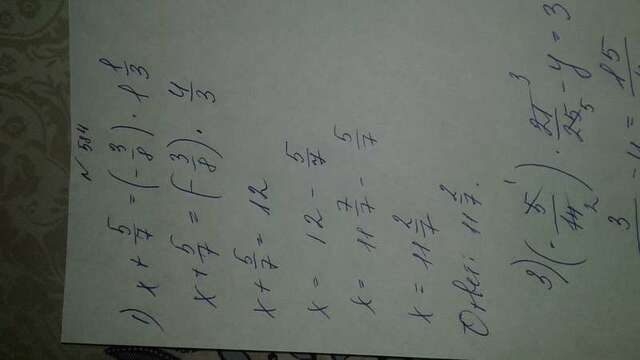 № 584
1) x + 5/7 = (- 3/8) · 1 1/3
x + 5/7 = (- 3/8) · 4/3
x + 5/7 = 12
x = 12 - 5/7
x = 11 7/7 - 5/7
x = 11 2/7
Ответ: 11 2/7.
3) (- 5/14) · 21/25 - y = 3
1 2 3 5
3 - y = 15